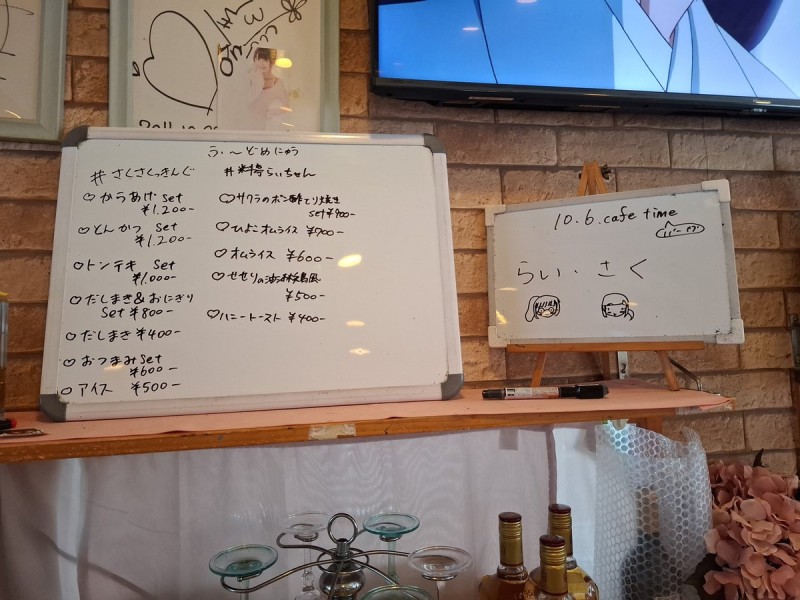 う〜どめにゅう
#さくさくっきんぐ
♡からあげ set
¥1,200-
♡とんかつ set
¥1,200-
♡トンテキ set
¥1,000-
♡だしまき&おにぎり
set ¥800-
♡だしまき ¥400-
♡おつまみ set
¥600-
♡アイス ¥500-
#料理らいちゃん
♡サクラのポン酢てり焼き
set ¥900-
♡ひよこオムライス ¥700-
♡オムライス ¥600-
♡せせりの油淋鶏風
¥500-
♡ハニートースト ¥400-
10.6.cafe time
らい・さく